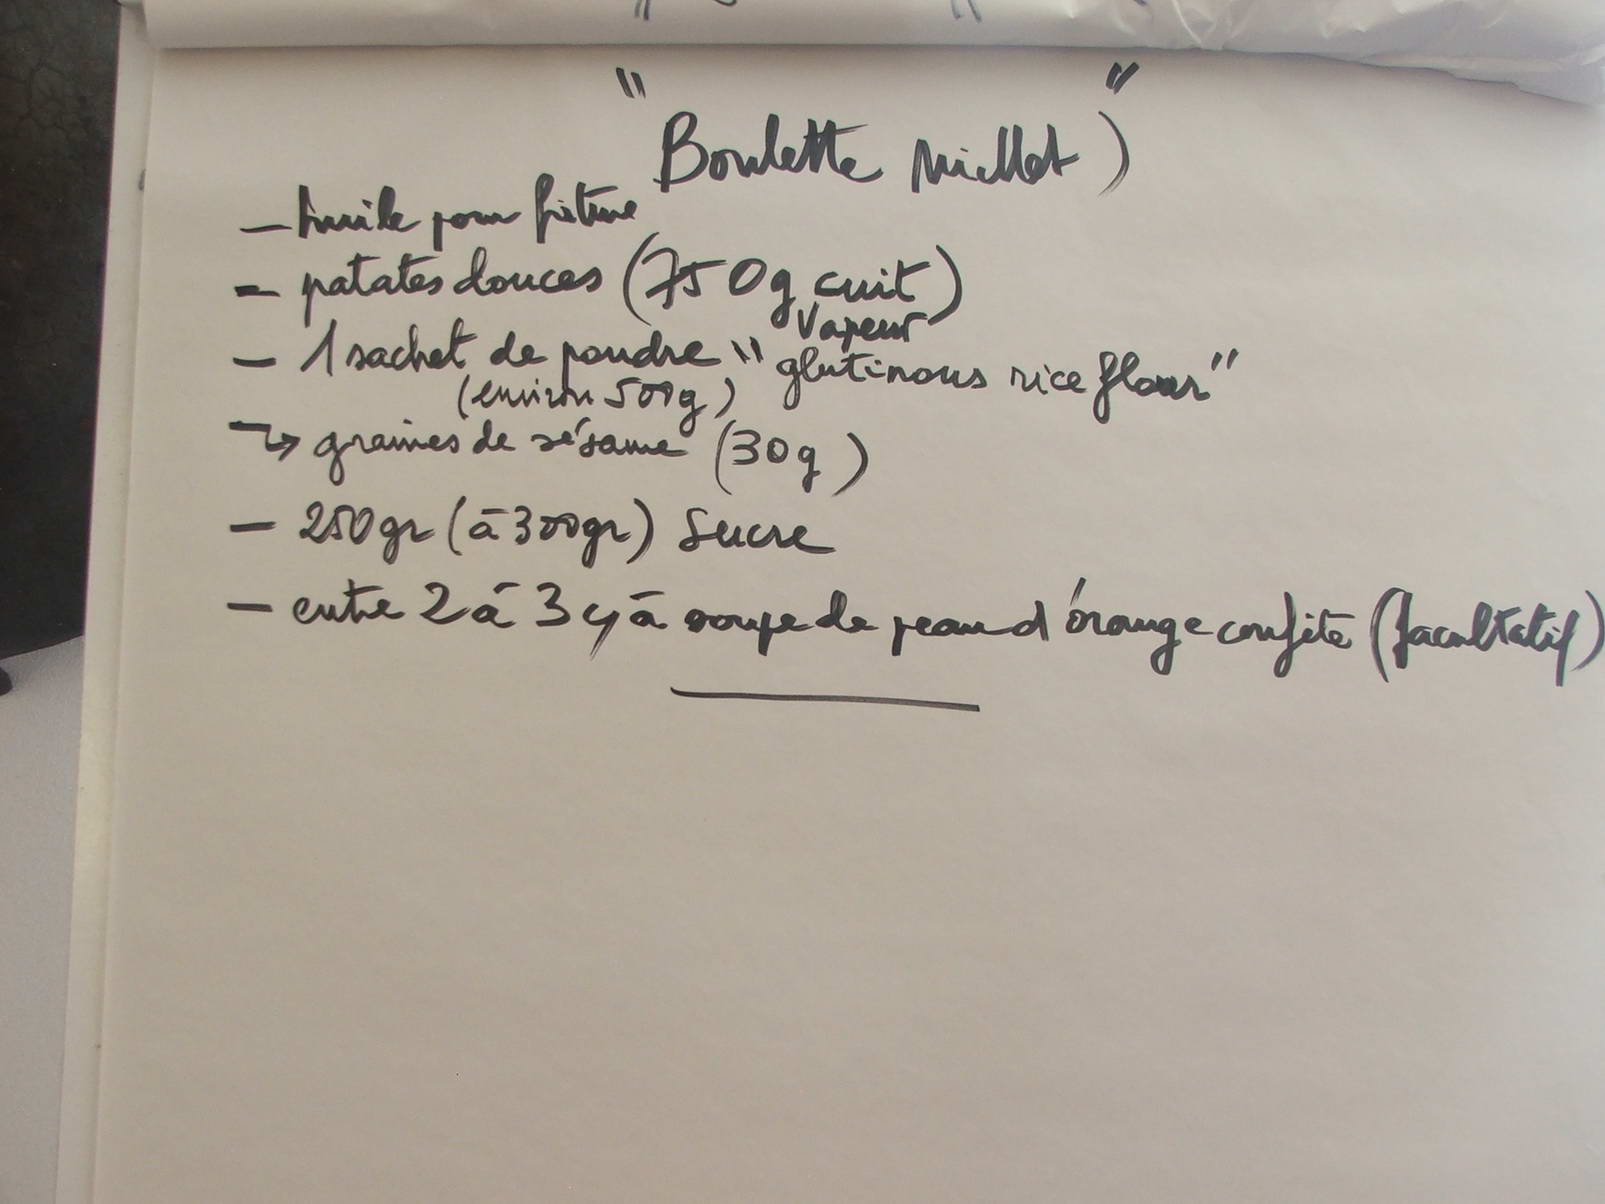 "Boulette Millet")
- huile pour friture
- patates douces (750g cuit
vapeur)
- 1 sachet de poudre "glutinous rice flour"
(environ 500g)
→ graines de sésame (30g)
- 250gr (à 300gr) Sucre
- entre 2 à 3 c/à soupe de peau d'orange confite (facultatif)